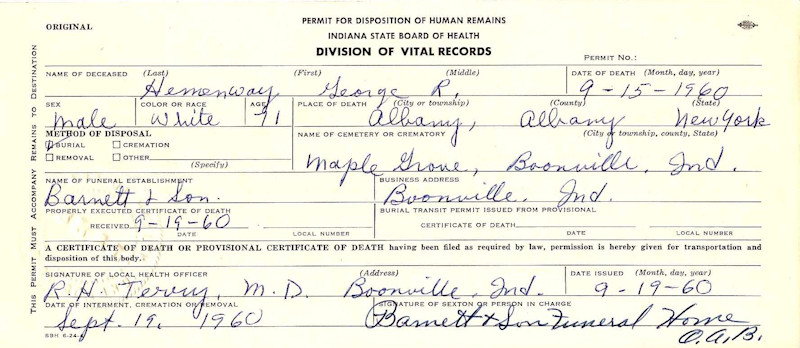 ORIGINAL
PERMIT FOR DISPOSITION OF HUMAN REMAINS
INDIANA STATE BOARD OF HEALTH
DIVISION OF VITAL RECORDS
PERMIT NO.:
THIS PERMIT MUST ACCOMPANY REMAINS TO DESTINATION
NAME OF DECEASED (Last) (First) (Middle) DATE OF DEATH (Month, day, year)
Hemenway George R. 9-15-1960
SEX COLOR OR RACE AGE PLACE OF DEATH (City or township) (County) (State)
Male White 71 Albany, Albany New York
METHOD OF DISPOSAL NAME OF CEMETERY OR CREMATORY (City or township, county, State)
BURIAL CREMATION
REMOVAL OTHER (Specify)
Maple Grove, Boonville, Ind.
NAME OF FUNERAL ESTABLISHMENT BUSINESS ADDRESS
Barnett & Son. Boonville, Ind.
PROPERLY EXECUTED CERTIFICATE OF DEATH BURIAL TRANSIT PERMIT ISSUED FROM PROVISIONAL
RECEIVED 9-19-60 CERTIFICATE OF DEATH
DATE LOCAL NUMBER DATE LOCAL NUMBER
A CERTIFICATE OF DEATH OR PROVISIONAL CERTIFICATE OF DEATH having been filed as required by law, permission is hereby given for transportation and
disposition of this body.
SIGNATURE OF LOCAL HEALTH OFFICER (Address) DATE ISSUED (Month, day, year)
R.H. Tervy, M.D. Boonville, Ind. 9-19-60
DATE OF INTERMENT, CREMATION OR REMOVAL SIGNATURE OF SEXTON OR PERSON IN CHARGE
Sept. 19, 1960 Barnett & Son Funeral Home
O.A.B.
SBH 6-24